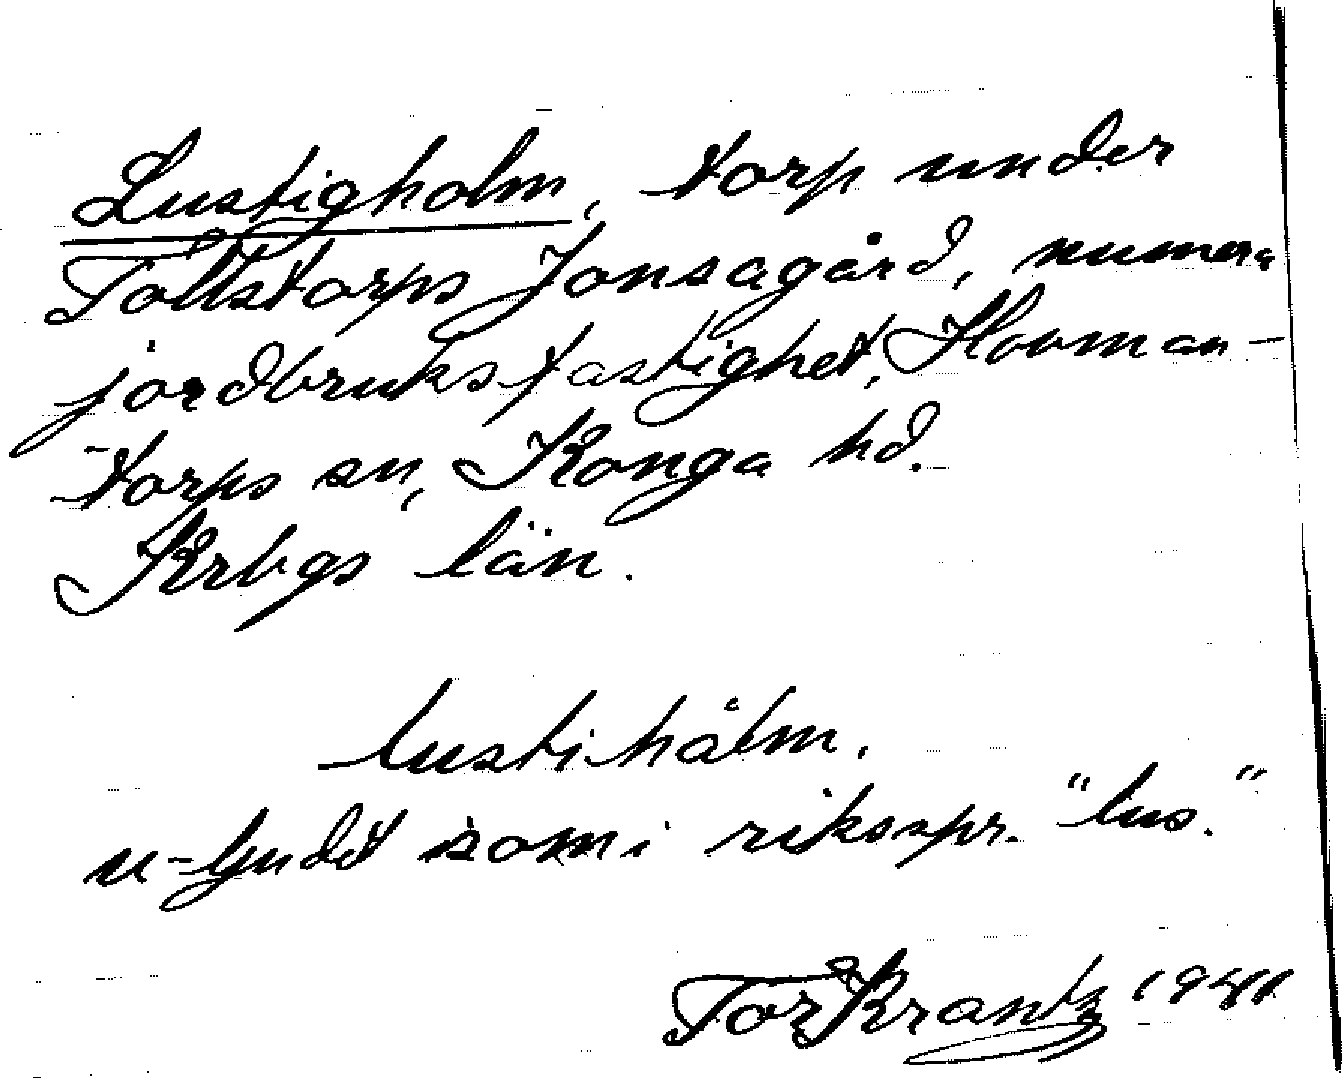 Lustigholm, torp under
Tollstorps Jonsagård, numera
jordbruksfastighet, Hovman-
torps sn, Konga hd.
Krbgs län.
lustihålm.
u-ljudet som i riksspr. "lus."
Tor Krantz 1941